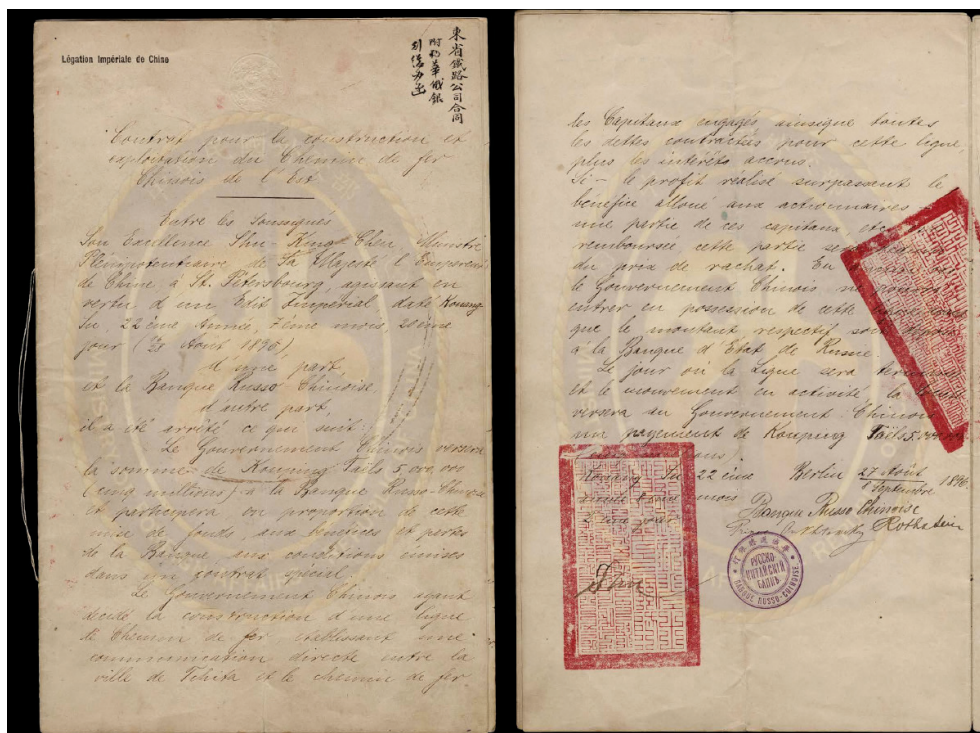 Légation Impériale de Chine
東省鐵路公司合同
附初華俄銀
Contrat pour la construction et
exploitation du Chemin de fer
Chinois de l'Est
Entre les Soussignés
Son Excellence Shu-King-Chen, Ministre
Plénipotentiaire de Sa Majesté l'Empereur
de Chine à St. Pétersbourg, agissant en
vertu d'un Edit Impérial, daté Kouang
Su, 22ème Année, 7ème mois, 20ème
jour (28 Août 1896)
d'une part,
et la Banque Russo-Chinoise
d'autre part,
il a été arrêté ce qui suit:
Le Gouvernement Chinois versera
la somme de Kouping Taëls 5,000,000
(cinq millions) à la Banque Russo-Chinoise
et participera en proportion de cette
mise de fonds aux bénéfices et pertes
de la Banque aux conditions émises
dans un contrat spécial.
Le Gouvernement Chinois ayant
décidé la construction d'une ligne
de Chemin de fer établissant une
communication directe entre la
ville de Tchita et le chemin de fer
les Capitaux engagés ainsique toutes
les dettes contractées pour cette ligne,
plus les intérêts accrus.
Si le profit réalisé surpassant le
bénéfice alloué aux actionnaires
une partie de ces capitaux
remboursée cette partie
du prix de rachat. En
le Gouvernement Chinois ne
entrer en possession de cette
que le montant respectif
à la Banque d'Etat de Russie.
Le jour où la Ligne sera
et le mouvement en activité la
versera au Gouvernement Chinois
un payement de Kouping Taëls 5,000,000
Su 22ème Berlin 27 Août 1896
mois 8 Septembre
Banque Russo Chinoise
Rothstein
Shu
РУССКО-
КИТАЙСКІЙ
БАНКЪ
BANQUE RUSSO-CHINOISE